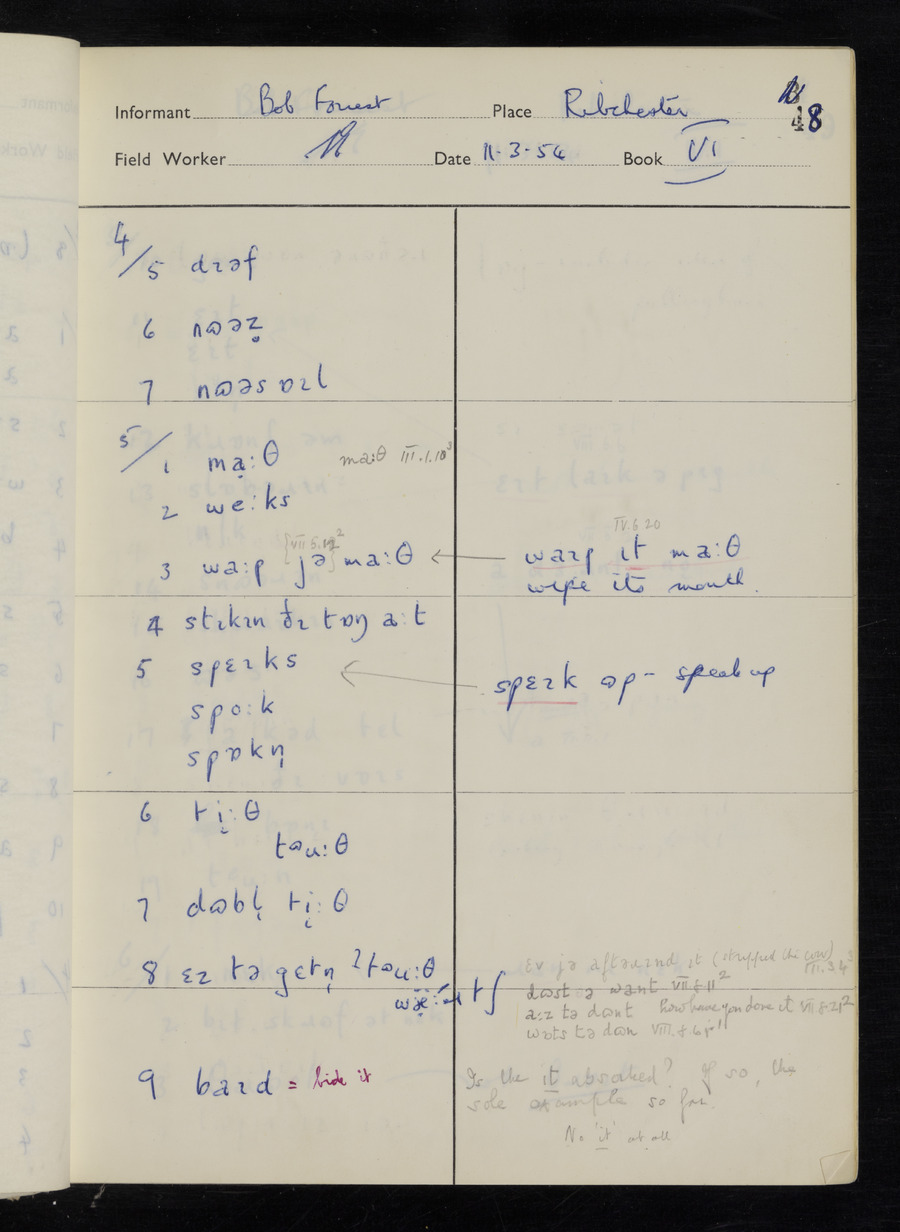 Informant Bob Forrest Place Ribchester 48
Field Worker Date 11-3-54 Book VI
4/5 dɹəf
6 nɷəz̥
7 nɷəsɒɪl
5/1 ma̤:θ ma:θ III.1.10³
2 we:ks
3 wa:p jə ma:θ [VII 5.12²] ← waɪp ɪt ma:θ IV.6 20
wipe its mouth.
4 stɪkɪn ðɪ tɒŋ a:t
5 spɛɪks ← spɛɪk ɷp – speak up
spo:k
spɒkn̩
6 ti̤:θ
təu:θ
7 dɷbl̩ ti̤:θ
8 ɛz tə getn̩ ʔtəu:θ
ɛv jə aftəɹənd ɪt (stripped the cow) III.3.4³
dɷst ə want VII.8.11²
a:z tə dɷnt how have you done it VII.8.21²
wɒts tə dɷn VIII.8.6
9 baɪd = bide it
Is the it absorbed? If so, the
sole example so far.
No 'it' at all